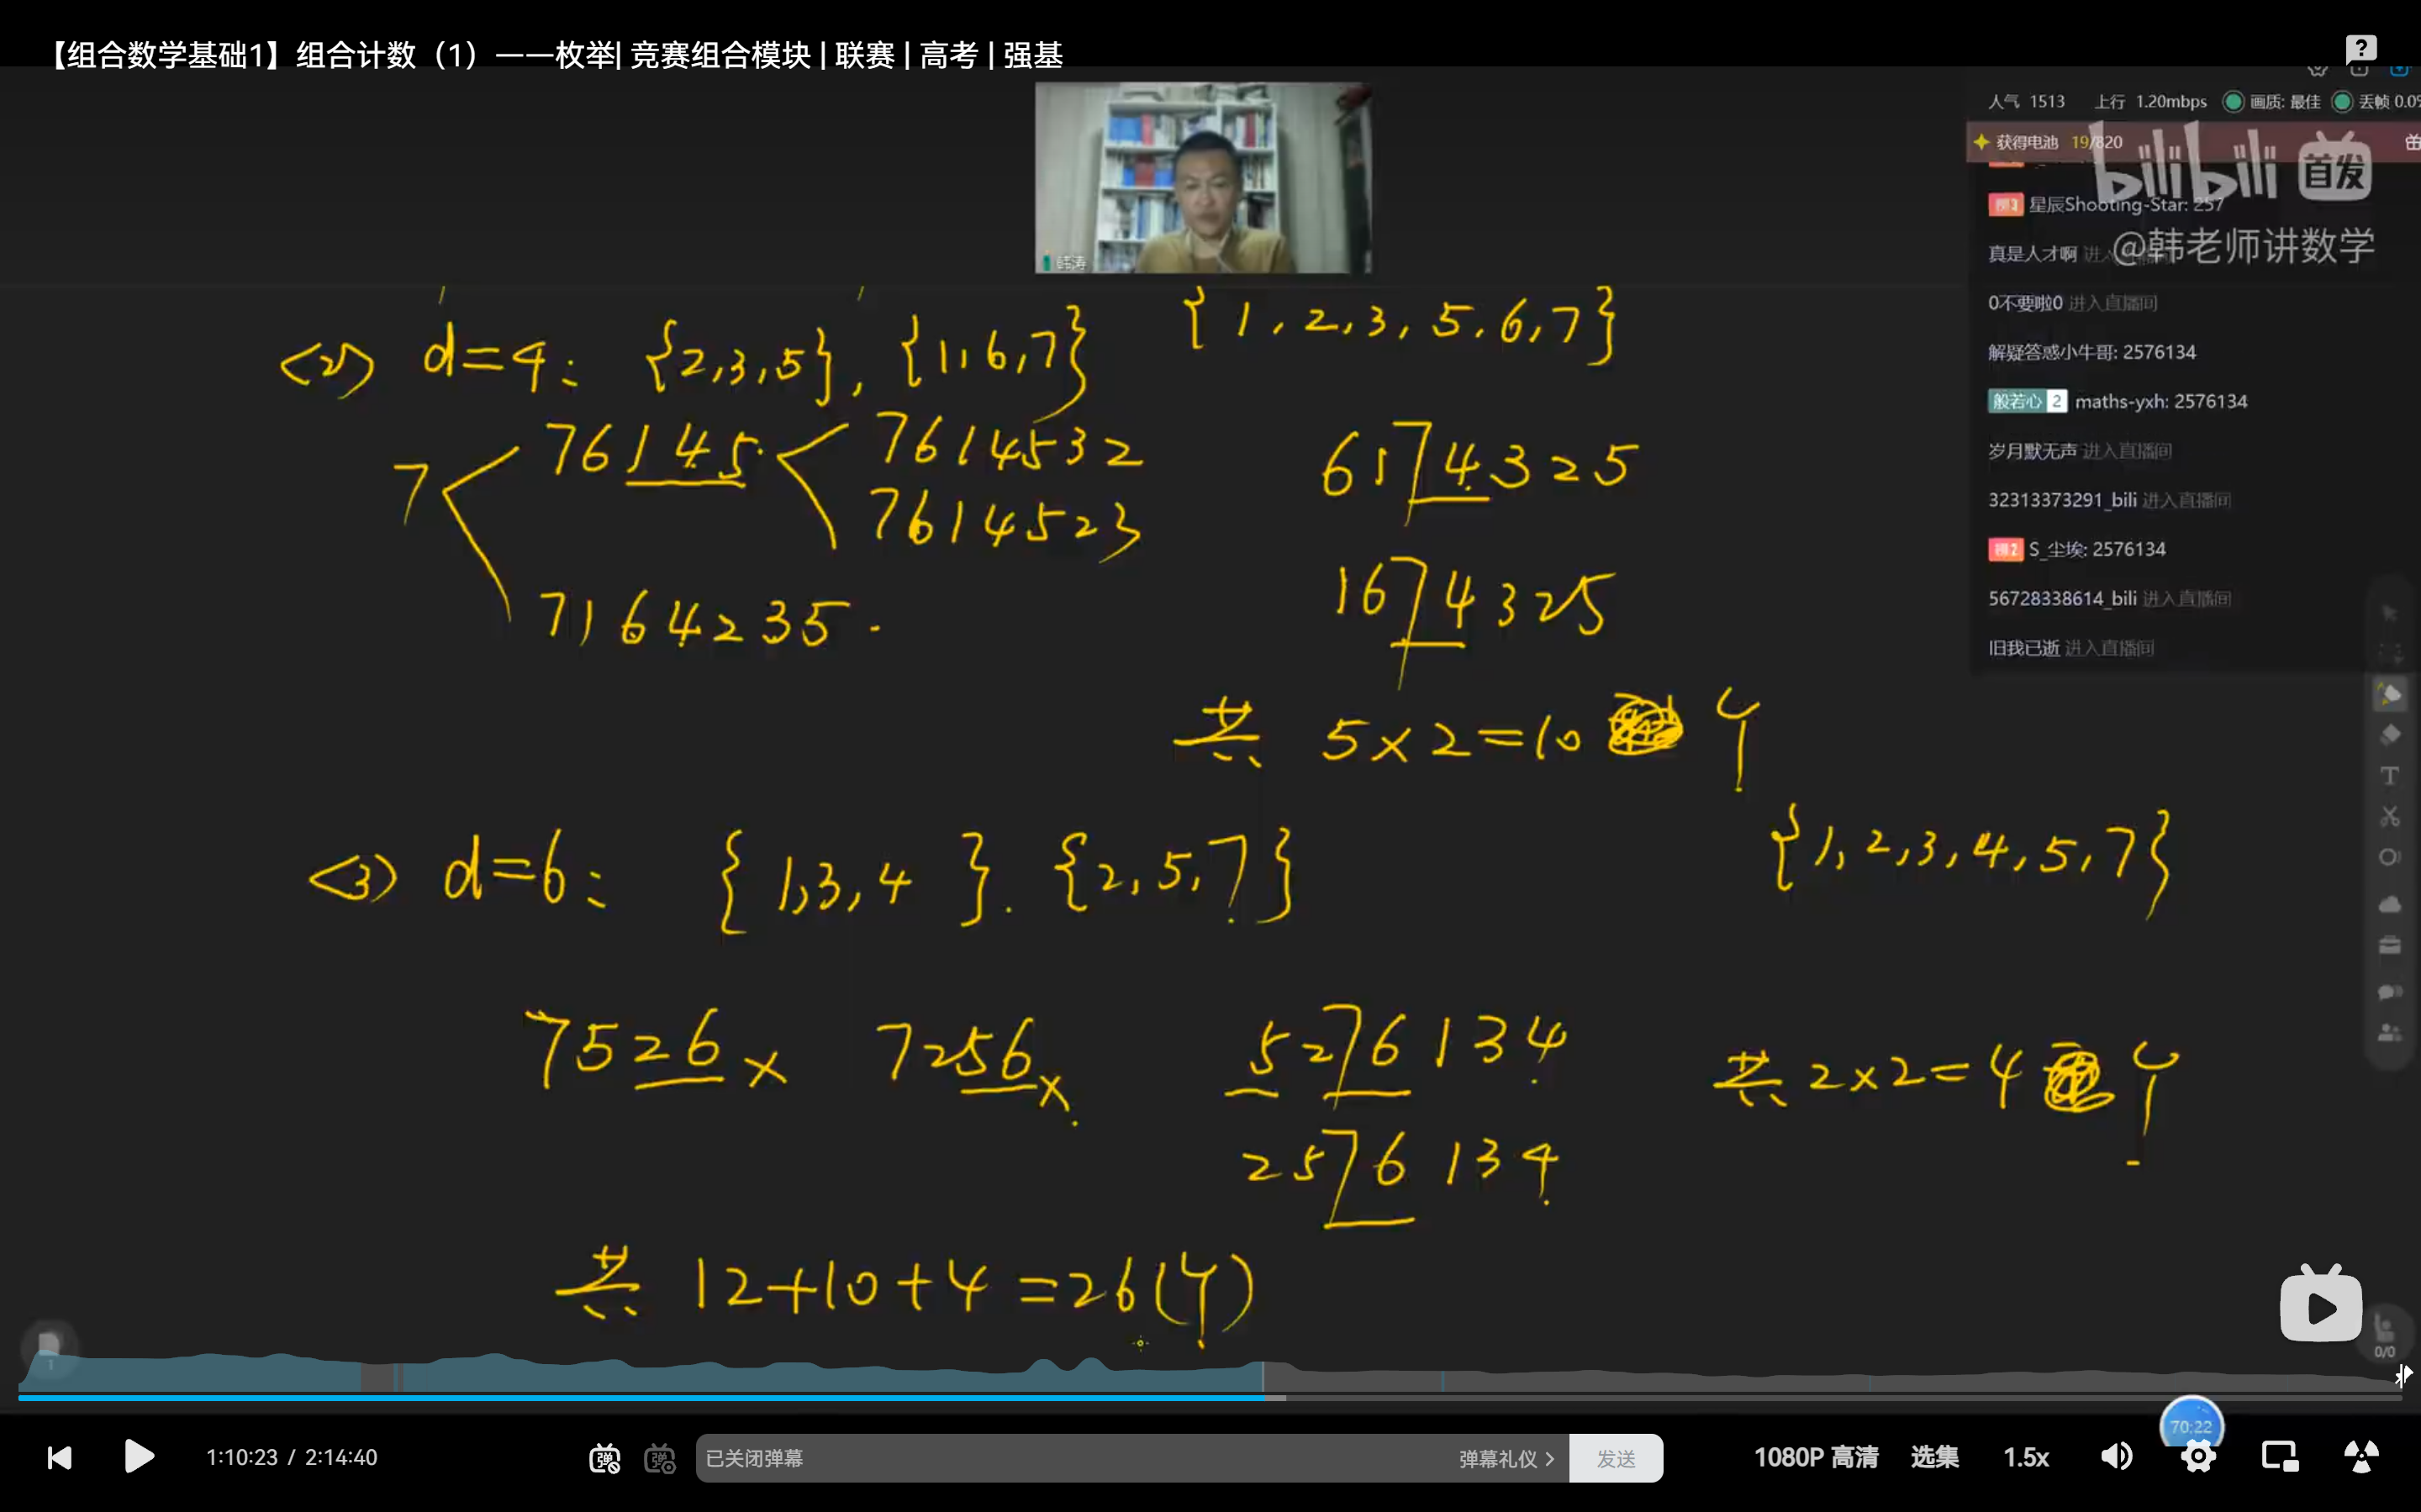 【组合数学基础1】组合计数（1）——枚举| 竞赛组合模块 | 联赛 | 高考 | 强基
人气 1513 上行 1.20mbps 画质: 最佳 丢帧 0.0%
获得电池 19/820
bilibili 首发
星辰Shooting-Star: 257
@韩老师讲数学
真是人才啊
0不要啦0 进入直播间
解疑答惑小牛哥: 2576134
般若心 2 maths-yxh: 2576134
岁月默无声 进入直播间
32313373291_bili 进入直播间
S_尘埃: 2576134
56728338614_bili 进入直播间
旧我已逝 进入直播间
韩涛
{1,2,3,5,6,7}
<2> d=4: {2,3,5}, {1,6,7}
76145 7614532
7 7614523
7164235.
6174325
1674325
共 5×2=10 个
<3> d=6: {1,3,4}. {2,5,7}
{1,2,3,4,5,7}
7526 × 7256 × 5276134
2576134
共 2×2=4 个
共 12+10+4=26(个)
1
0/0
70:22
1:10:23 / 2:14:40
已关闭弹幕 弹幕礼仪 > 发送
1080P 高清 选集 1.5x